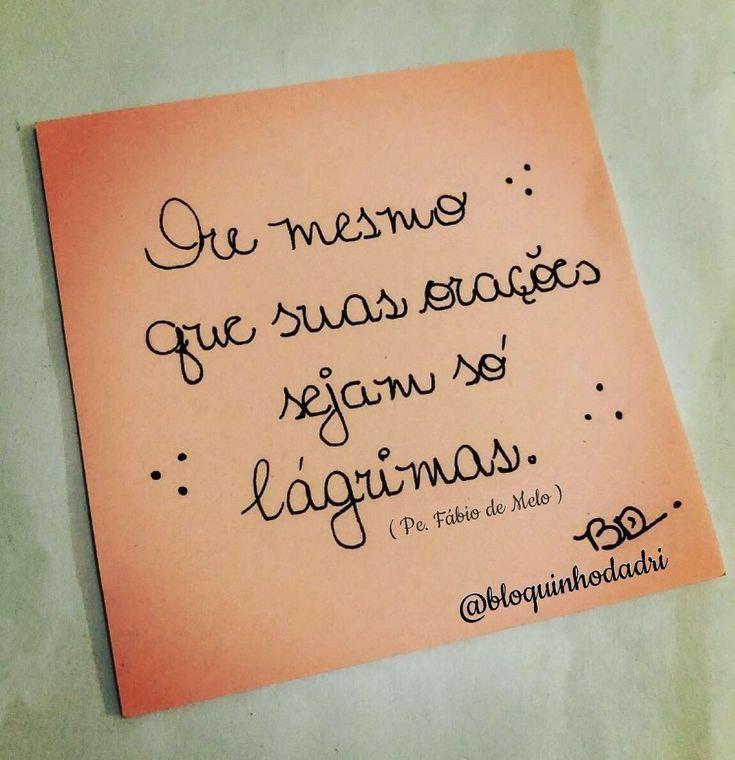 Ore mesmo
que suas orações
sejam só
lágrimas.
( Pe. Fábio de Melo )
BD.
@bloquinhodadri